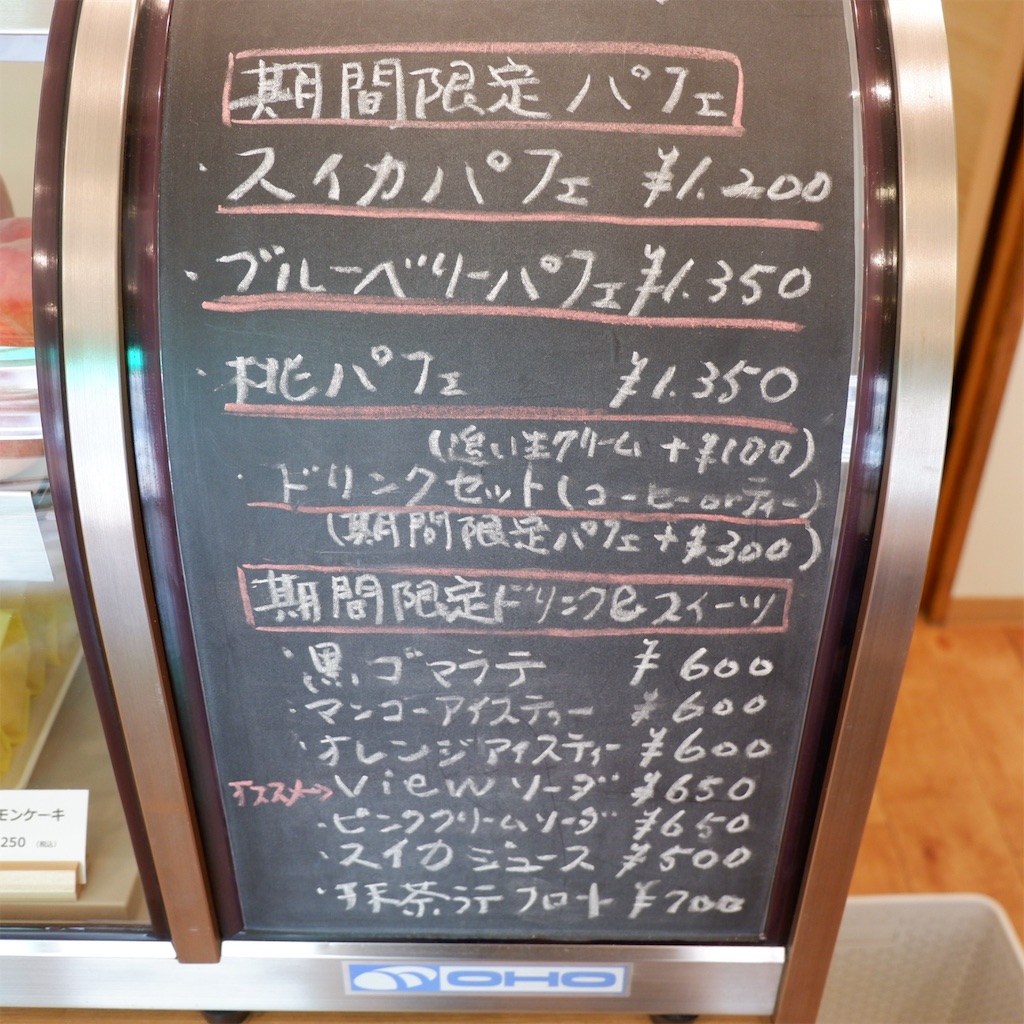 期間限定パフェ
・スイカパフェ ¥1.200
・ブルーベリーパフェ ¥1.350
・桃パフェ ¥1.350
(追い生クリーム +¥100)
・ドリンクセット(コーヒーorティー)
(期間限定パフェ+¥300)
期間限定ドリンク&スイーツ
・黒ゴマラテ ¥600
・マンゴーアイスティー ¥600
・オレンジアイスティー ¥600
オススメ→Viewソーダ ¥650
・ピンククリームソーダ ¥650
・スイカジュース ¥500
・抹茶ラテフロート ¥700
モンケーキ
250 (税込)
OHO